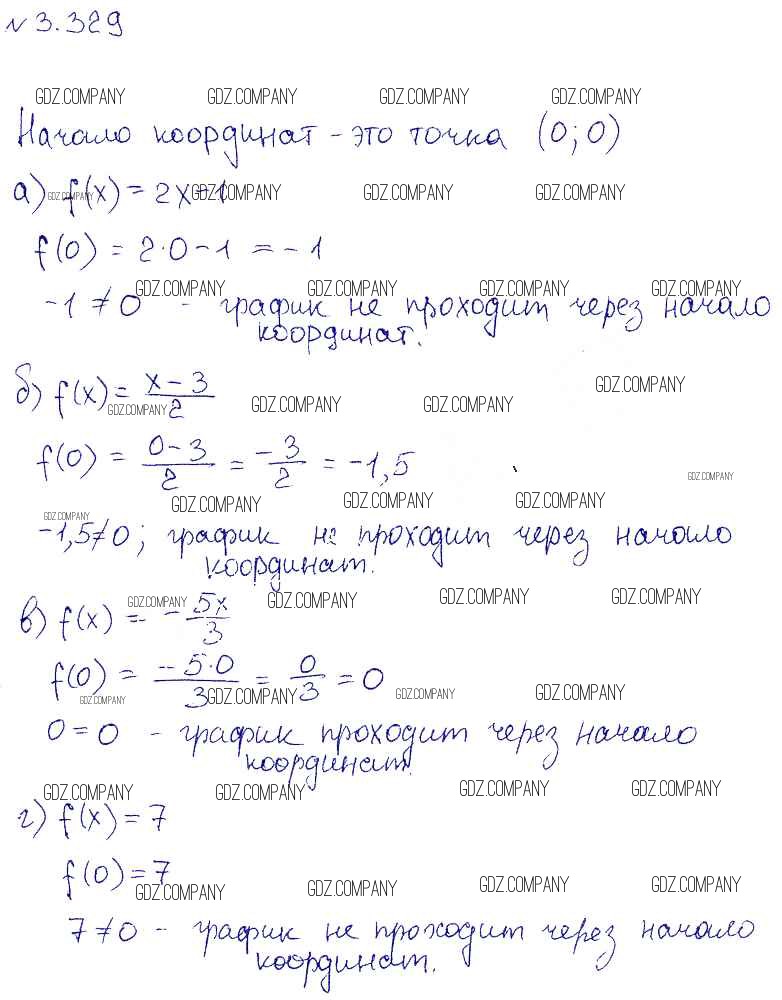 № 3.329
GDZ.COMPANY GDZ.COMPANY GDZ.COMPANY GDZ.COMPANY
Начало координат - это точка (0; 0)
а) f(x) = 2x-1
GDZ.COMPANY GDZ.COMPANY GDZ.COMPANY GDZ.COMPANY
f(0) = 2·0-1 = -1
GDZ.COMPANY GDZ.COMPANY GDZ.COMPANY GDZ.COMPANY
-1 ≠ 0 - график не проходит через начало
координат.
б) f(x) = (x-3)/2
GDZ.COMPANY GDZ.COMPANY GDZ.COMPANY GDZ.COMPANY
f(0) = (0-3)/2 = -3/2 = -1,5
GDZ.COMPANY
GDZ.COMPANY GDZ.COMPANY GDZ.COMPANY GDZ.COMPANY
-1,5≠0; график не проходит через начало
координат.
GDZ.COMPANY GDZ.COMPANY GDZ.COMPANY GDZ.COMPANY
в) f(x) = -5x/3
f(0) = (-5·0)/3 = 0/3 = 0
GDZ.COMPANY GDZ.COMPANY GDZ.COMPANY GDZ.COMPANY
0 = 0 - график проходит через начало
координат.
GDZ.COMPANY GDZ.COMPANY GDZ.COMPANY GDZ.COMPANY
г) f(x) = 7
f(0) = 7
GDZ.COMPANY GDZ.COMPANY GDZ.COMPANY GDZ.COMPANY
7 ≠ 0 - график не проходит через начало
координат.